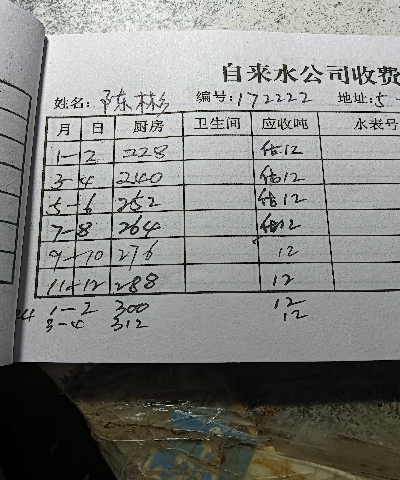 自来水公司收费
姓名: 陈彬 编号: 172222 地址: 5-
月 日 厨房 卫生间 应收吨 水表号
1-2 228 估12
3-4 240 估12
5-6 252 估12
7-8 264 估12
9-10 276 12
11-12 288 12
24 1-2 300 12
3-4 312 12